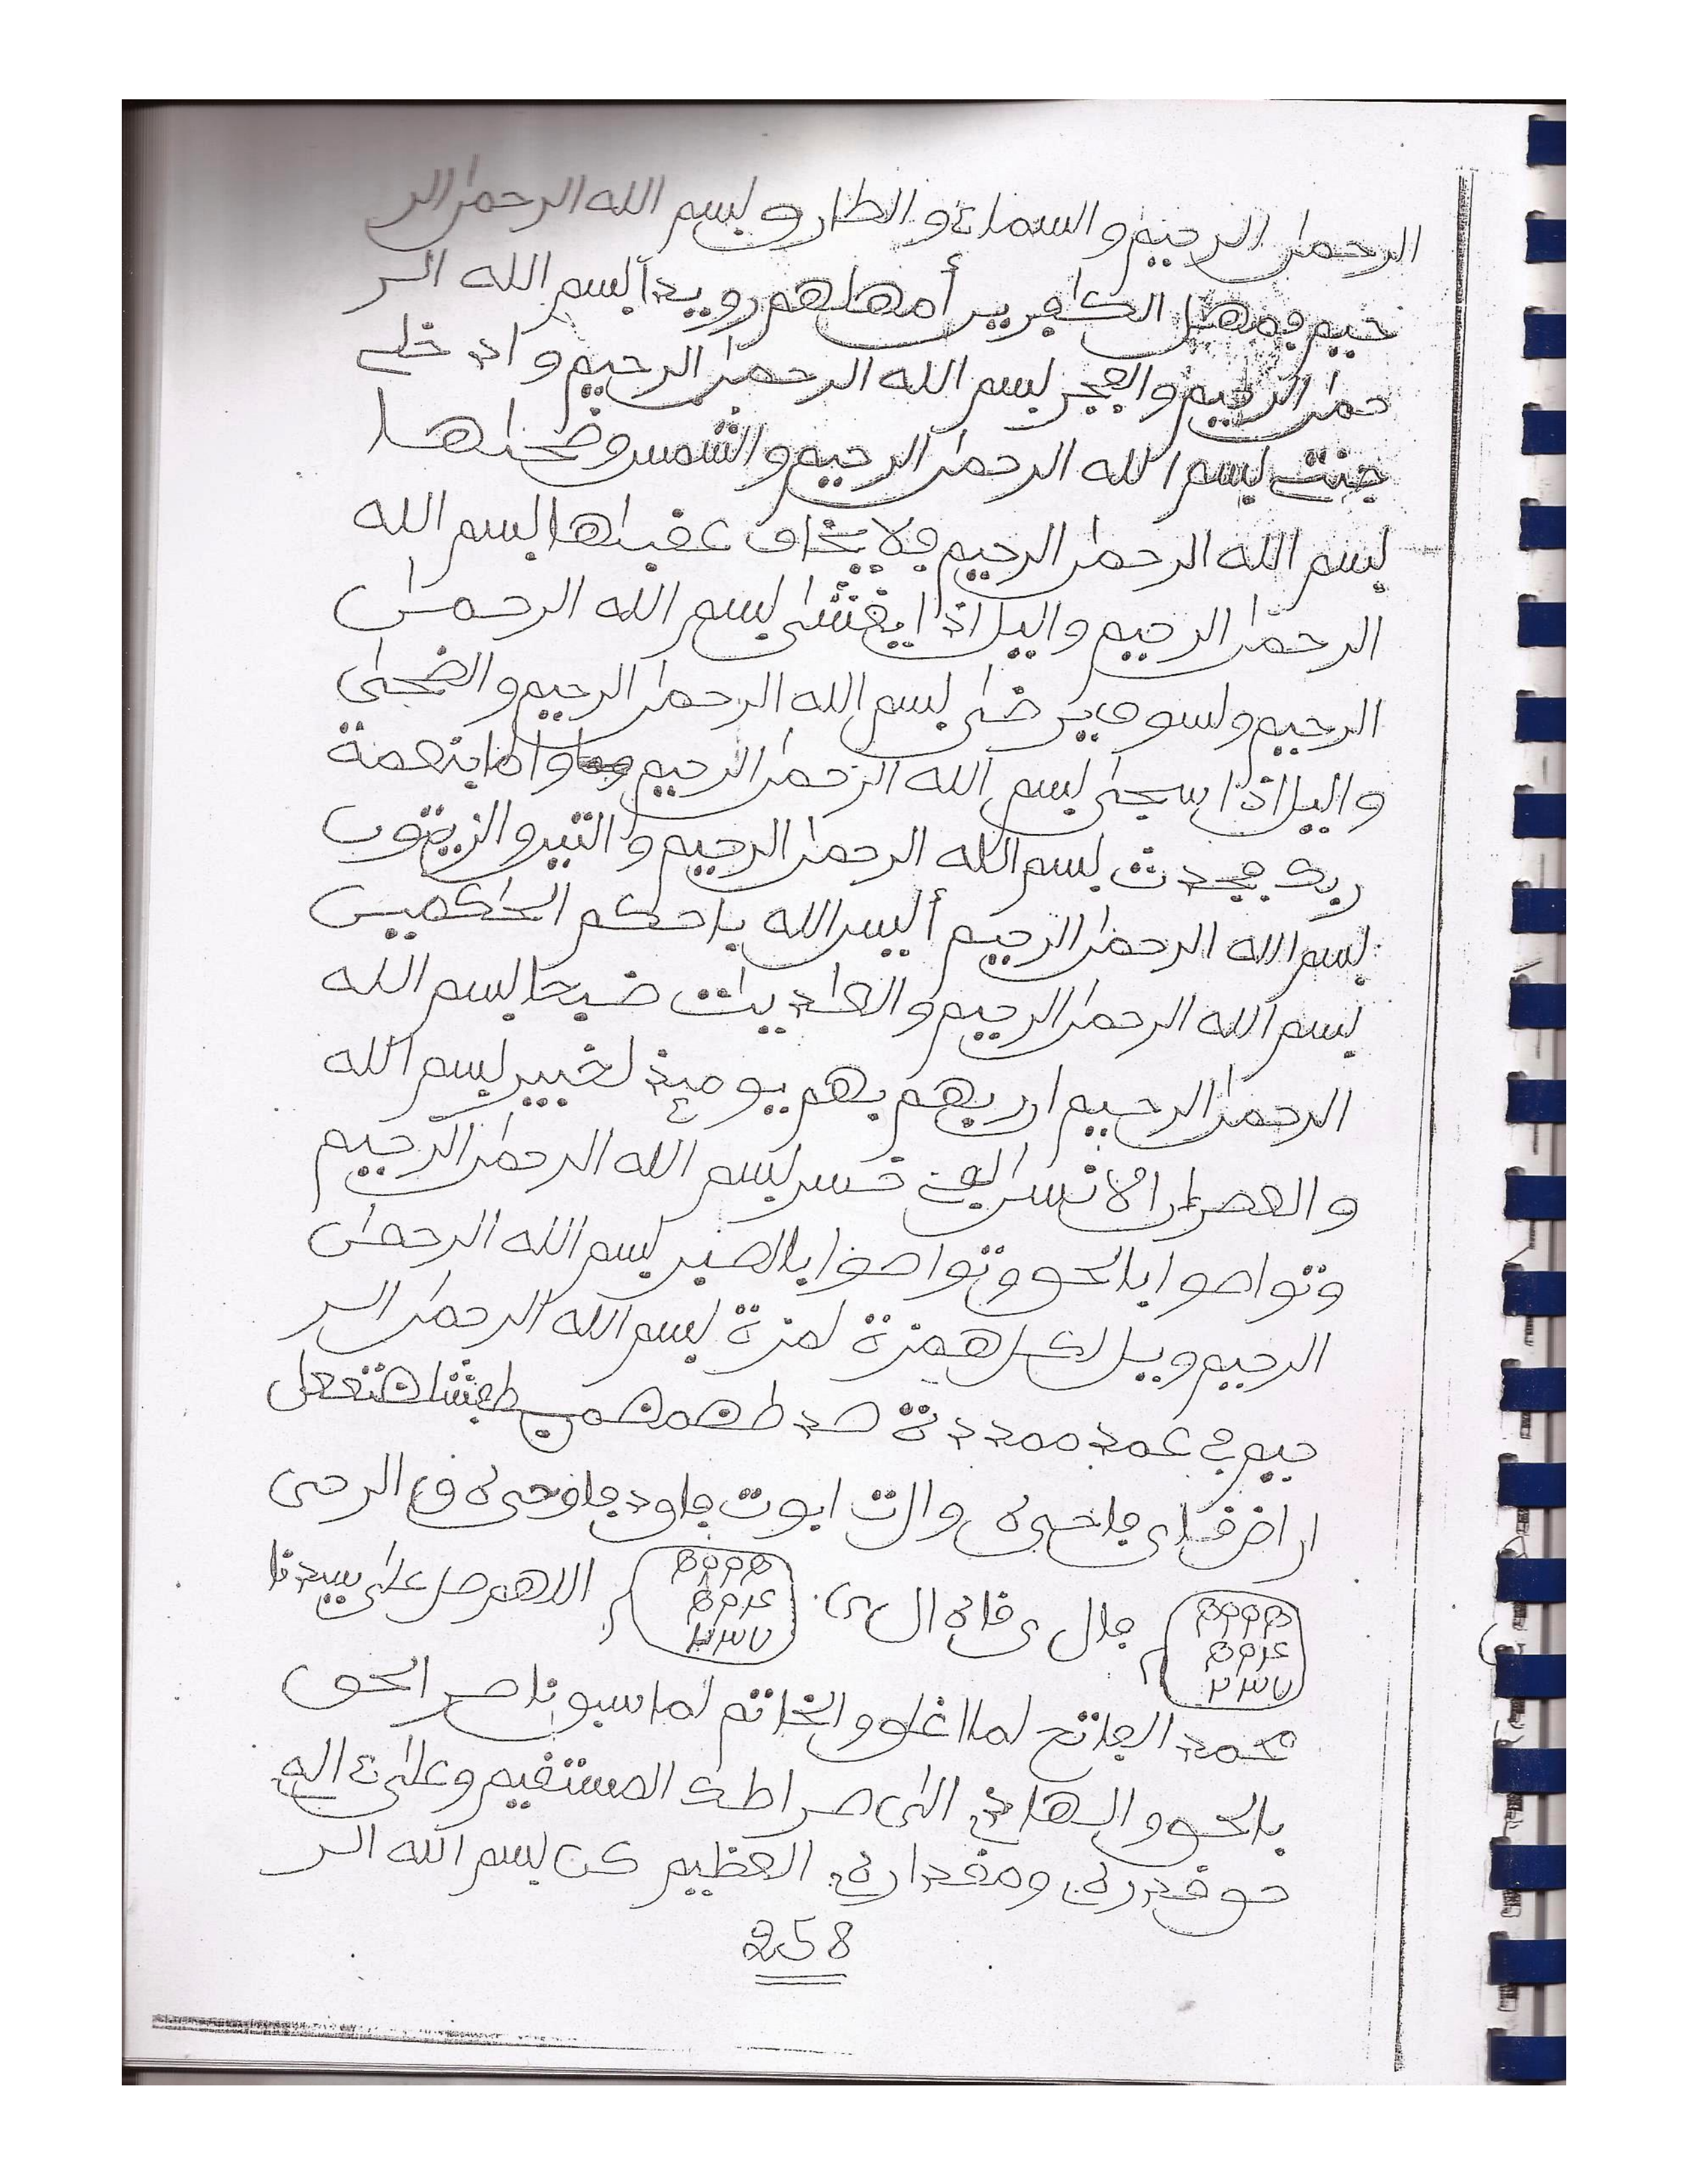 الرحمٰن الرحيم والسماء والطارق بسم الله الرحمٰن الر
حيم فمهل الكٰفرين أمهلهم رويدا بسم الله الر
حمٰن الرحيم والفجر بسم الله الرحمٰن الرحيم وادخلے
جنتے بسم الله الرحمٰن الرحيم والشمس وضحٰىها
بسم الله الرحمٰن الرحيم فلا يخاف عقبٰىها بسم الله
الرحمٰن الرحيم واليل اذا يغشىٰ بسم الله الرحمٰن
الرحيم ولسوف يرضىٰ بسم الله الرحمٰن الرحيم والضحىٰ
واليل اذا سجىٰ بسم الله الرحمٰن الرحيم واما بنعمة
ربك فحدث بسم الله الرحمٰن الرحيم والتين والزيتون
بسم الله الرحمٰن الرحيم أليس الله باحكم الحٰكمين
بسم الله الرحمٰن الرحيم والعٰديٰت ضبحا بسم الله
الرحمٰن الرحيم ان ربهم بهم يومئذ لخبير بسم الله
والعصر ان الانسٰن لفے خسر بسم الله الرحمٰن الرحيم
وتواصوا بالحق وتواصوا بالصبر بسم الله الرحمٰن
الرحيم ويل لكل همزة لمزة بسم الله الرحمٰن الر
حيم فے عمد ممددة
والت ابوت
اللهم صل علىٰ سيدنا
محمد الفاتح لما اغلق والخاتم لما سبق ناصر الحق
بالحق والهادے الىٰ صراطك المستقيم وعلىٰ ءاله
حق قدره ومقداره العظيم كن بسم الله الر
258